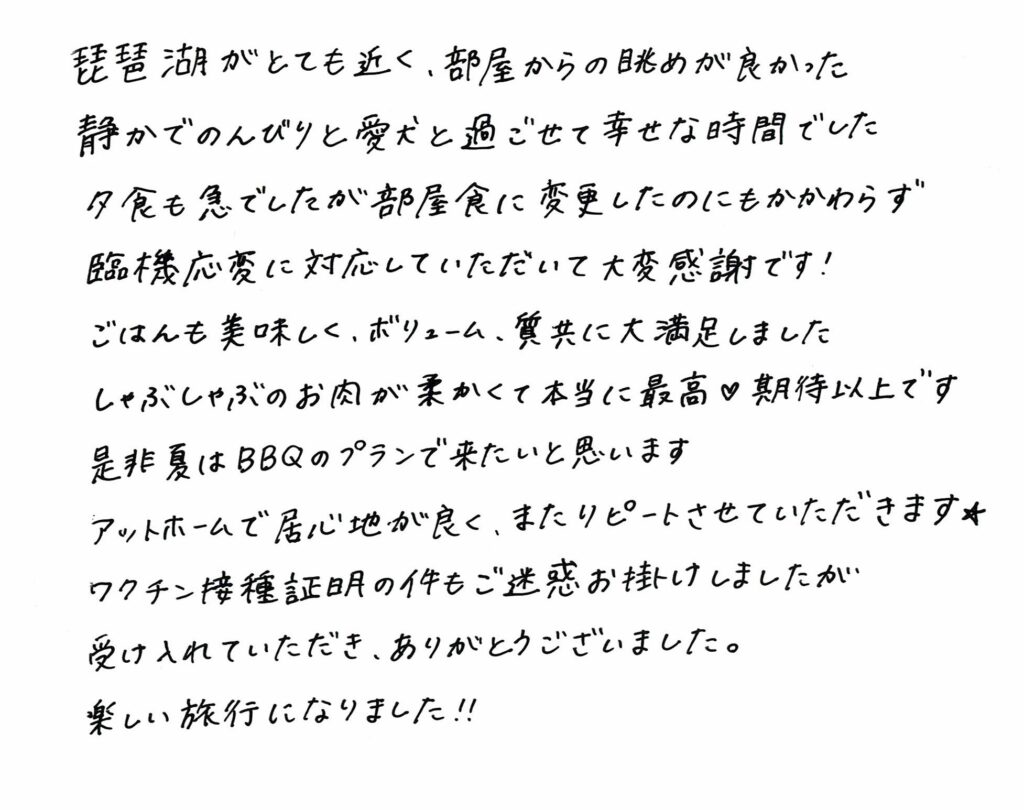 琵琶湖がとても近く、部屋からの眺めが良かった
静かでのんびりと愛犬と過ごせて幸せな時間でした
夕食も急でしたが部屋食に変更したのにもかかわらず
臨機応変に対応していただいて大変感謝です!
ごはんも美味しく、ボリューム、質共に大満足しました
しゃぶしゃぶのお肉が柔かくて本当に最高♥期待以上です
是非夏はBBQのプランで来たいと思います
アットホームで居心地が良く、またリピートさせていただきます★
ワクチン接種証明の件もご迷惑お掛けしましたが
受け入れていただき、ありがとうございました。
楽しい旅行になりました!!